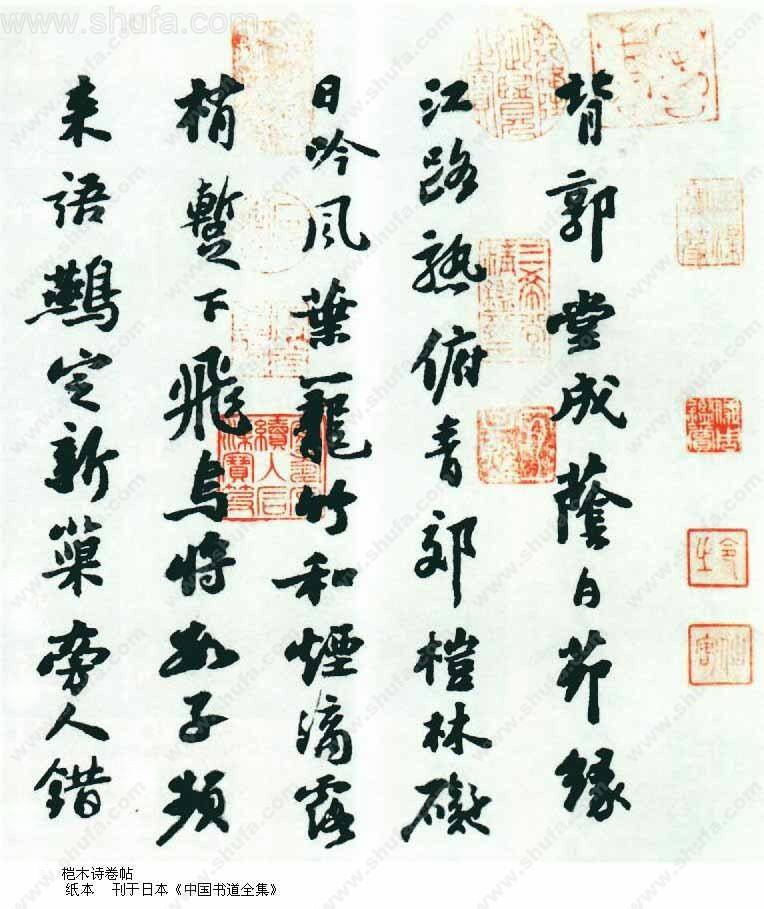 背郭堂成蔭白茆緣
江路熟俯青郊榿林礙
日吟風葉籠竹和煙滴露
梢暫下飛烏將數子頻
来語鷰定新巢旁人錯
三希堂精鑑璽
桤木诗卷帖
纸本 刊于日本《中国书道全集》
www.shufa.com